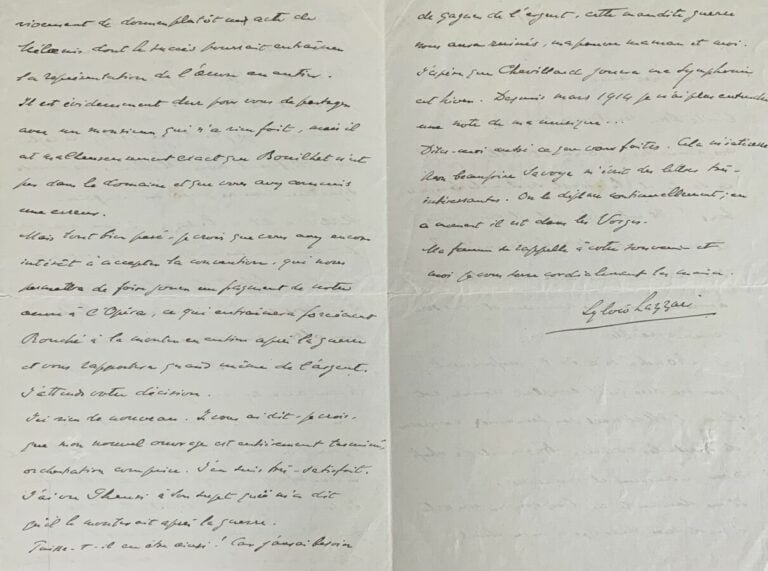 visement de donner plutôt un acte de
Mélaenis dont le succès pourrait entraîner
la représentation de l'œuvre en entier.
Il est évidemment dur pour vous de partager
avec un monsieur qui n'a rien fait, mais il
est malheureusement exact que Bouilhet n'est
pas dans le domaine et que vous avez commis
une erreur.
Mais tout bien pesé - je crois que vous avez encore
intérêt à accepter la convention, qui nous
permettra de faire jouer un fragment de notre
œuvre à l'Opéra, ce qui entraînera forcément
Rouché à la monter en entier après la guerre
et vous rapportera quand même de l'argent.
J'attends votre décision.
J'ai rien de nouveau. Je vous ai dit - je crois -
que mon nouvel ouvrage est entièrement terminé,
orchestration comprise. J'en suis très satisfait.
J'ai vu Gheusi à son sujet qui m'a dit
qu'il le monterait après la guerre.
Puisse-t-il en être ainsi ! Car j'aurai besoin
de gagner de l'argent, cette maudite guerre
nous aura ruinés, ma pauvre maman et moi.
J'espère que Chevillard jouera ma Symphonie
cet hiver. Depuis mars 1914 je n'ai plus entendu
une note de ma musique...
Dites-moi aussi ce que vous faites. Cela m'intéresse.
Mon beau-frère Savoye m'écrit des lettres très
intéressantes. On le déplace continuellement ; en
ce moment il est dans les Vosges.
Ma femme se rappelle à votre souvenir et
moi je vous serre cordialement les mains.
Sylvio Lazzari